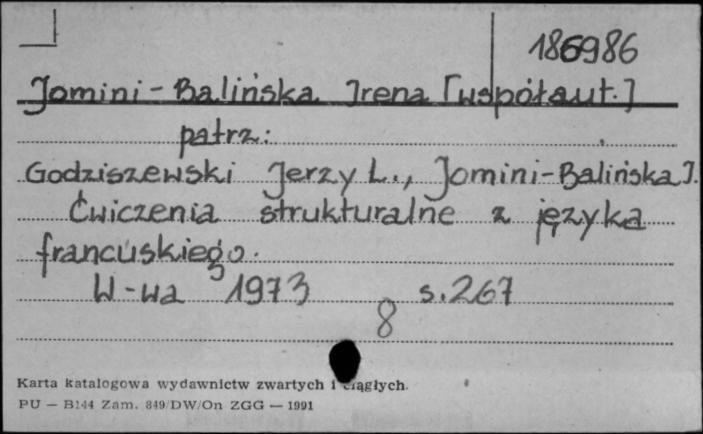 186986
Jomini-Balińska Irena [współaut.]
patrz:
Godziszewski Jerzy L., Jomini-Balińska I.
Ćwiczenia strukturalne z języka
francuskiego.
W-wa 1973 s.267
8
Karta katalogowa wydawnictw zwartych i ciągłych.
PU — B144 Zam. 849/DW/On ZGG — 1991